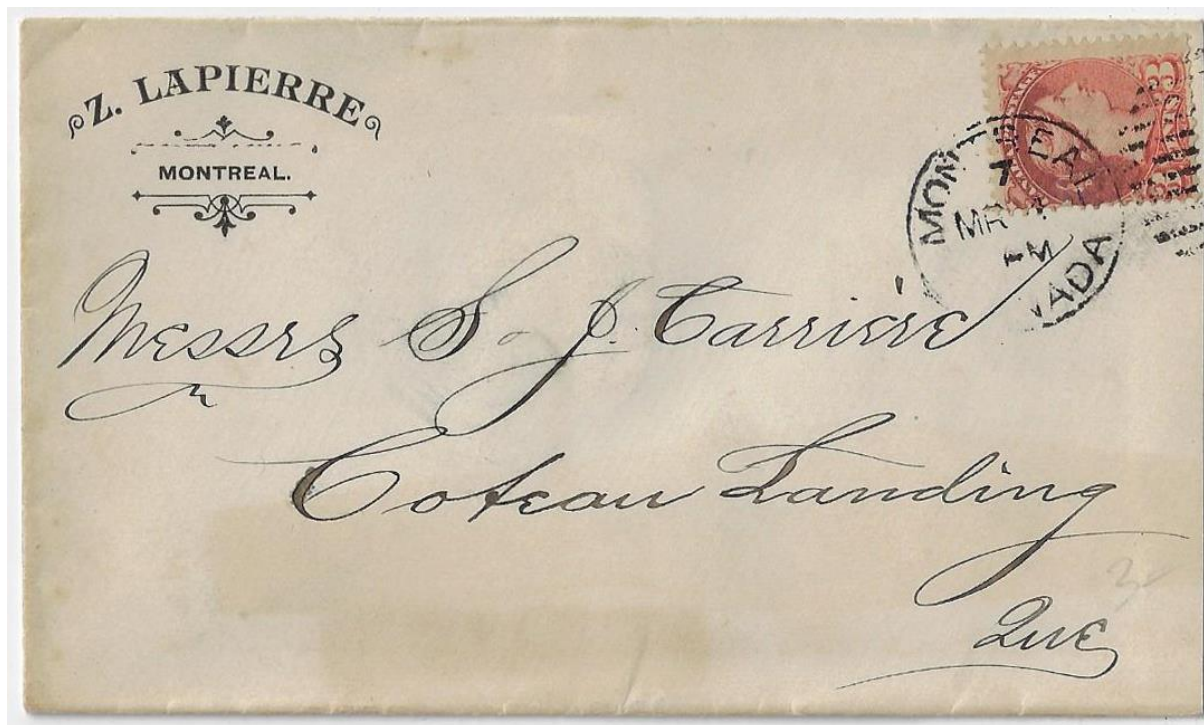 Z. LAPIERRE
MONTREAL.
3
MONTREAL
7
MR
PM
CANADA
Messrs S. J. Carrière
Coteau Landing
Que